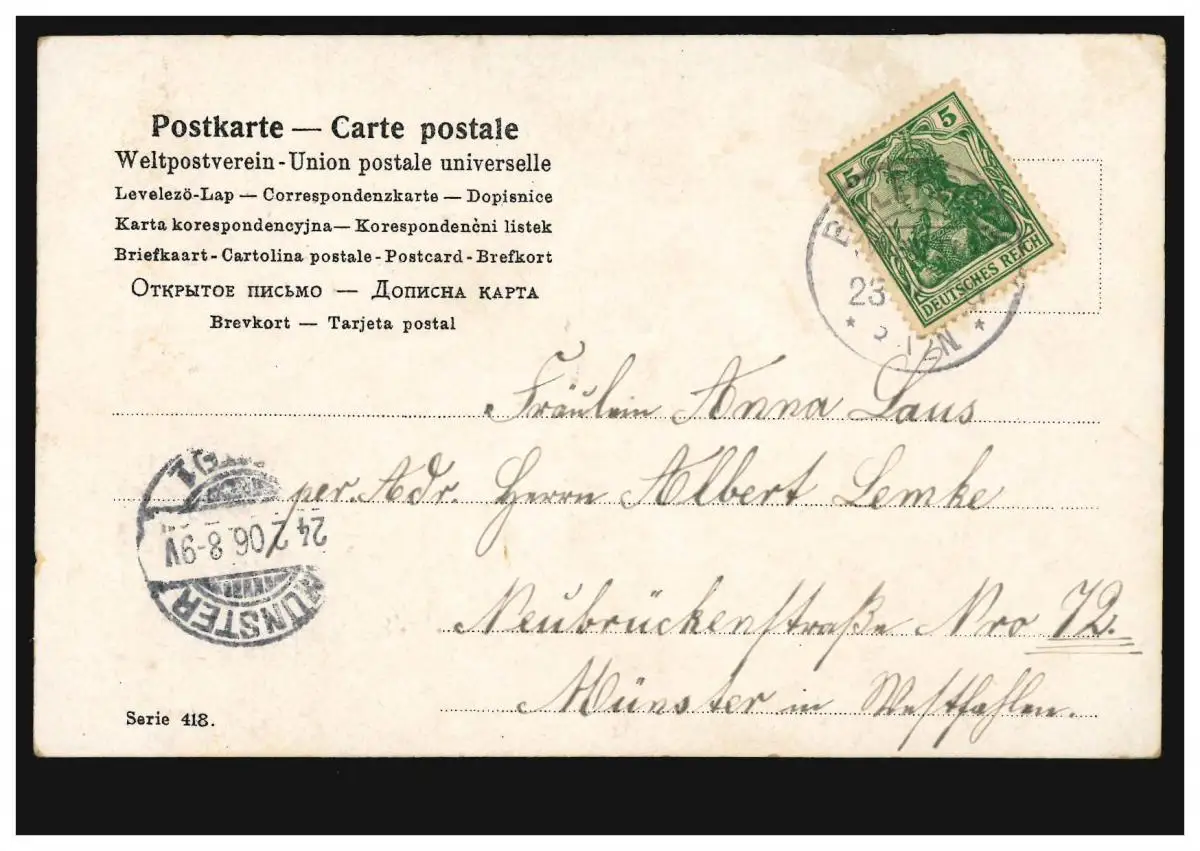 Postkarte — Carte postale
Weltpostverein - Union postale universelle
Levelezö-Lap — Correspondenzkarte — Dopisnice
Karta korespondencyjna — Korespondenčni listek
Briefkaart - Cartolina postale - Postcard - Brefkort
Открытое письмо — Дописна карта
Brevkort — Tarjeta postal
5
5
DEUTSCHES REICH
23
Fräulein Anna Laus
per. Adr. Herrn Albert Lemke
Neubrückenstraße Nro 72.
Münster in Westfahlen.
MÜNSTER
24.2.06.8-9V
Serie 418.